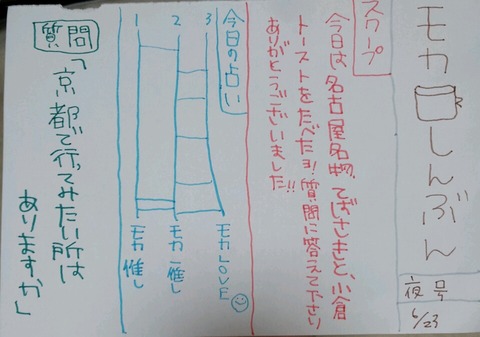 モカしんぶん
夜号
6/23
スクープ
今日は、名古屋名物、てばさきと、小倉
トーストをたべたヨ!質問に答えて下さり
ありがとうございました!!
今日の占い
3
2
1
モカLOVE
モカ一推し
モカ推し
質問
「京都で行ってみたい所は
ありますか」